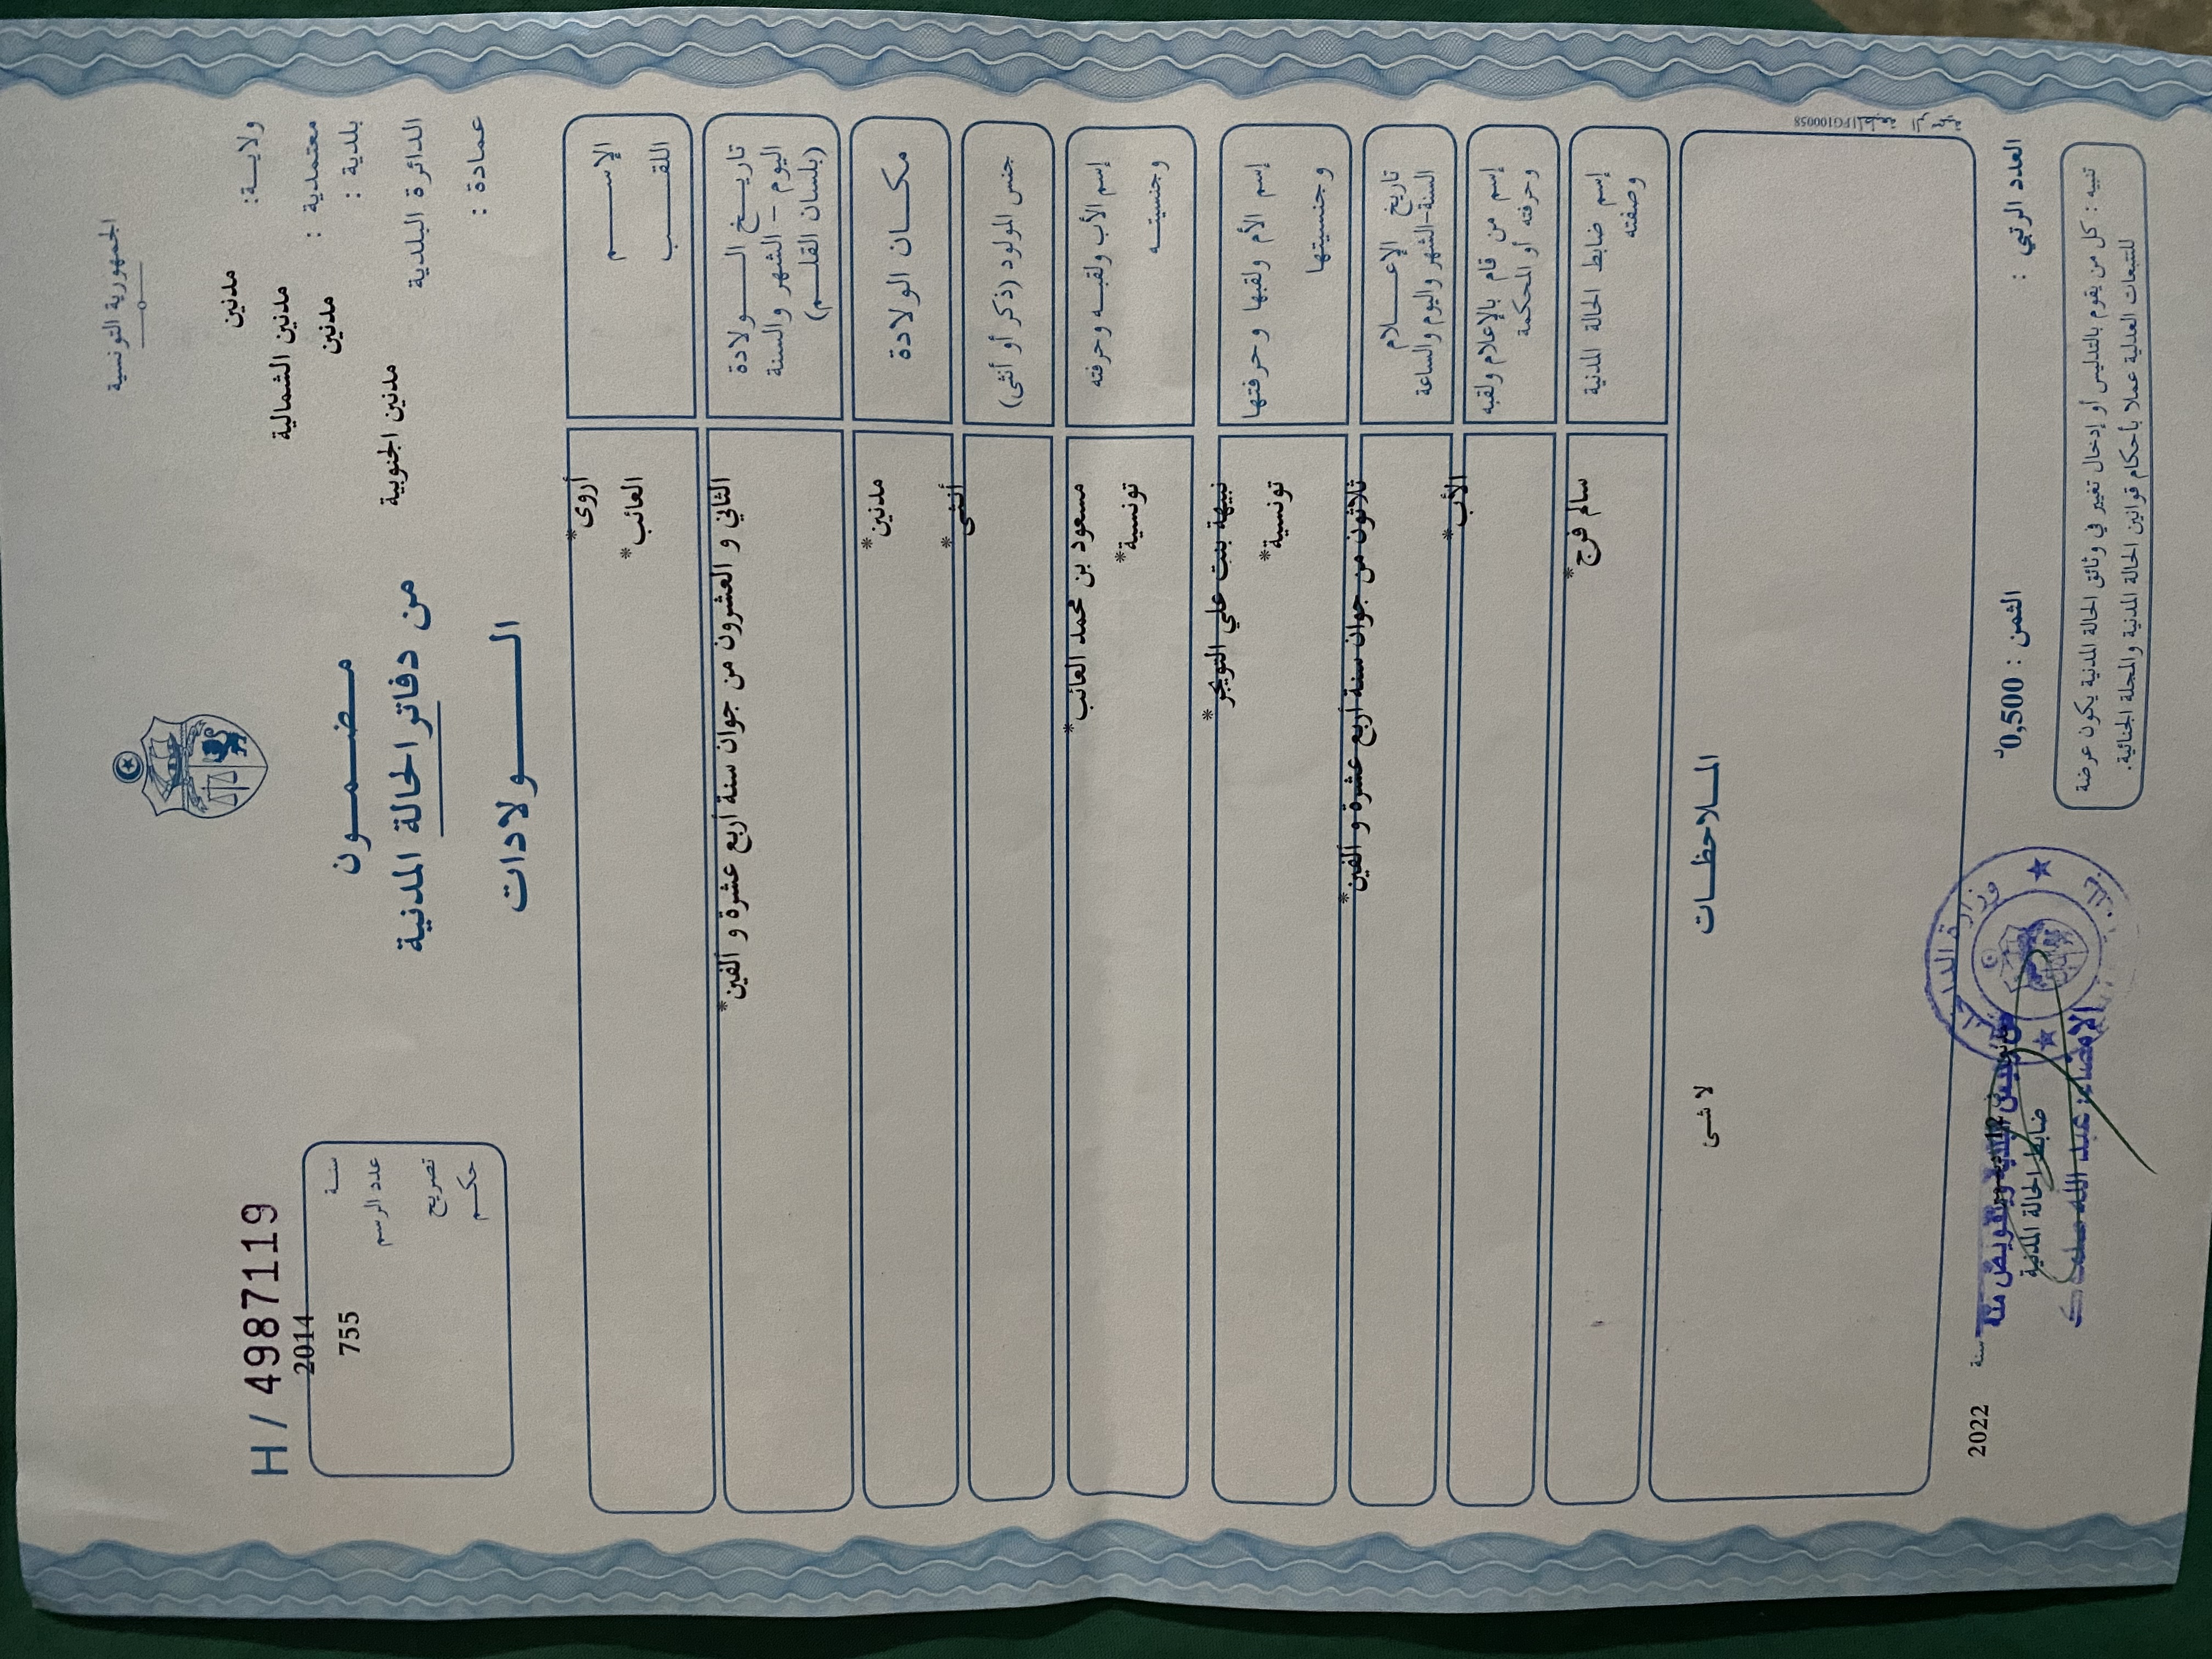 الجمهورية التونسية
ولايـة: مدنين
معتمدية : مدنين الشمالية
بلدية : مدنين
الدائرة البلدية مدنين الجنوبية
عمادة :
مضمـون
من دفاتر الحالة المدنية
الـولادات
H/ 4987119
سنـة 2014
عدد الرسم 755
تصريح
حكـم
الإسـم أروى*
اللقـب العائب*
تاريـخ الـولادة
اليوم – الشهر والسنة
(بلسان القلـم)
الثاني و العشرون من جوان سنة أربع عشرة و ألفين*
مكـان الولادة مدنين*
جنس المولود (ذكر أو أنثى) أنثى*
إسم الأب ولقبـه وحرفته مسعود بن محمد العائب*
وجنسيتـه تونسية*
إسم الأم ولقبها وحرفتها نبيهة بنت علي التويجر*
وجنسيتها تونسية*
تاريخ الإعـلام
السنة-الشهر واليوم والساعة
ثلاثون من جوان سنة أربع عشرة و ألفين*
إسم من قام بالإعلام ولقبه
وحرفته أو المحكمة
الأب*
إسم ضابط الحالة المدنية
وصفته
سالم فرج*
الملاحظـات
لا شئ
المطبعة الرسمية PG100058
العدد الرتبي :
الثمن : 0,500د
سنة 2022
ضابط الحالة المدنية
وبتفويض منه
الامضاء: عبد الله
وزارة الداخلية
تنبيه : كل من يقوم بالتدليس أو إدخال تغيير في وثائق الحالة المدنية يكون عرضة
للتتبعات العدلية عملا بأحكام قوانين الحالة المدنية والمجلة الجنائية.